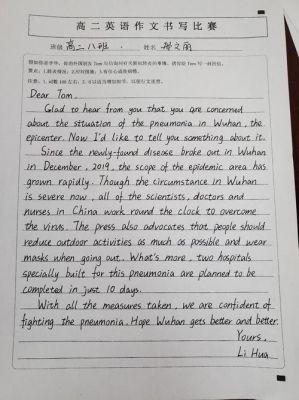 高二英语作文书写比赛
班级 高二八班. 姓名
Dear Tom,
Glad to hear from you that you are concerned
about the situation of the pneumonia in Wuhan, the
epicenter. Now I'd like to tell you something about it.
Since the newly-found disease broke out in Wuhan
in December, 2019, the scope of the epidemic area has
grown rapidly. Though the circumstance in Wuhan
is severe now, all of the scientists, doctors and
nurses in China work round the clock to overcome
the virus. The press also advocates that people should
reduce outdoor activities as much as possible and wear
masks when going out. What's more, two hospitals
specially built for this pneumonia are planned to be
completed in just 10 days.
With all the measures taken, we are confident of
fighting the pneumonia. Hope Wuhan gets better and better.
Yours,
Li Hua